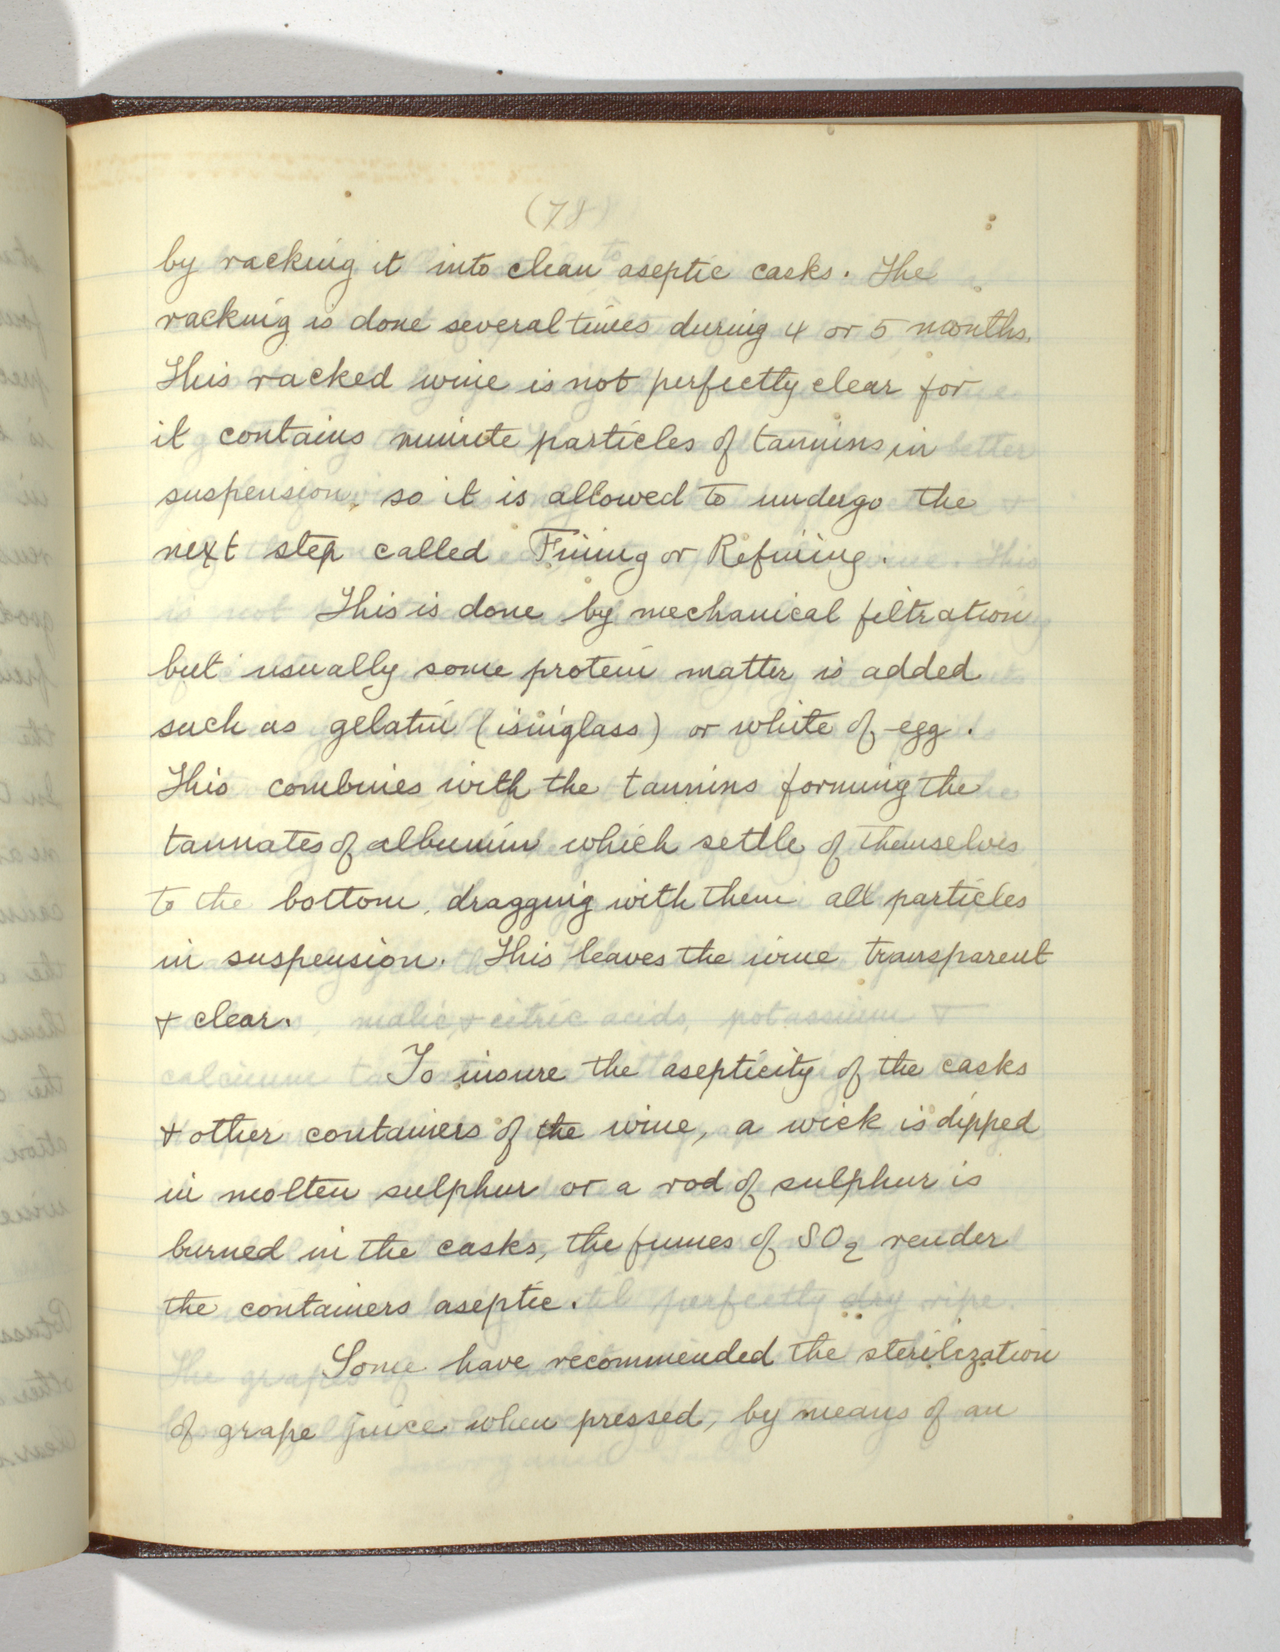 (78)
by racking it into clean aseptic casks. The
racking is done several times during 4 or 5 months.
This racked wine is not perfectly clear for
it contains minute particles of tannins in
suspension, so it is allowed to undergo the
next step called Fining or Refining.
This is done by mechanical filtration
but usually some protein matter is added
such as gelatin (isinglass) or white of egg.
This combines with the tannins forming the
tannates of albumin which settle of themselves
to the bottom, dragging with them all particles
in suspension. This leaves the wine transparent
& clear.
To insure the asepticity of the casks
& other containers of the wine, a wick is dipped
in molten sulphur or a rod of sulphur is
burned in the casks, the fumes of SO2 render
the containers aseptic.
Some have recommended the sterilization
of grape juice when pressed, by means of an